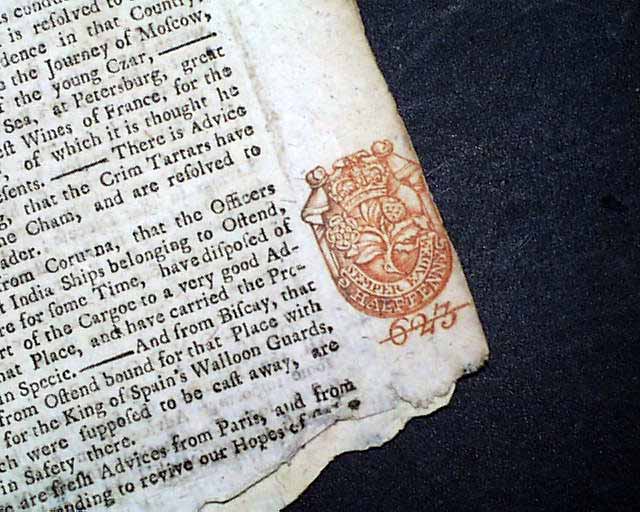 is resolved to
dence in that Country,
the Journey of Moſcow,
f the young Czar, ——
Sea, at Petersburg, great
eſt Wines of France, for the
, of which it is thought he
eſents. —— There is Advice
g, that the Crim Tartars have
he Cham, and are reſolved to
ader.
from Corunna, that the Officers
t India Ships belonging to Oſtend,
re for ſome Time, have diſpoſed of
rt of the Cargoe to a very good Ad-
hat Place, and have carried the Pro-
in Specie. —— And from Biſcay, that
from Oſtend bound for that Place with
for the King of Spain's Walloon Guards,
ch were ſuppoſed to be caſt away, are
in Safety there.
e are freſh Advices from Paris, and from
anding to revive our Hopes of
SEMPER EADEM
HALF PENNY
623